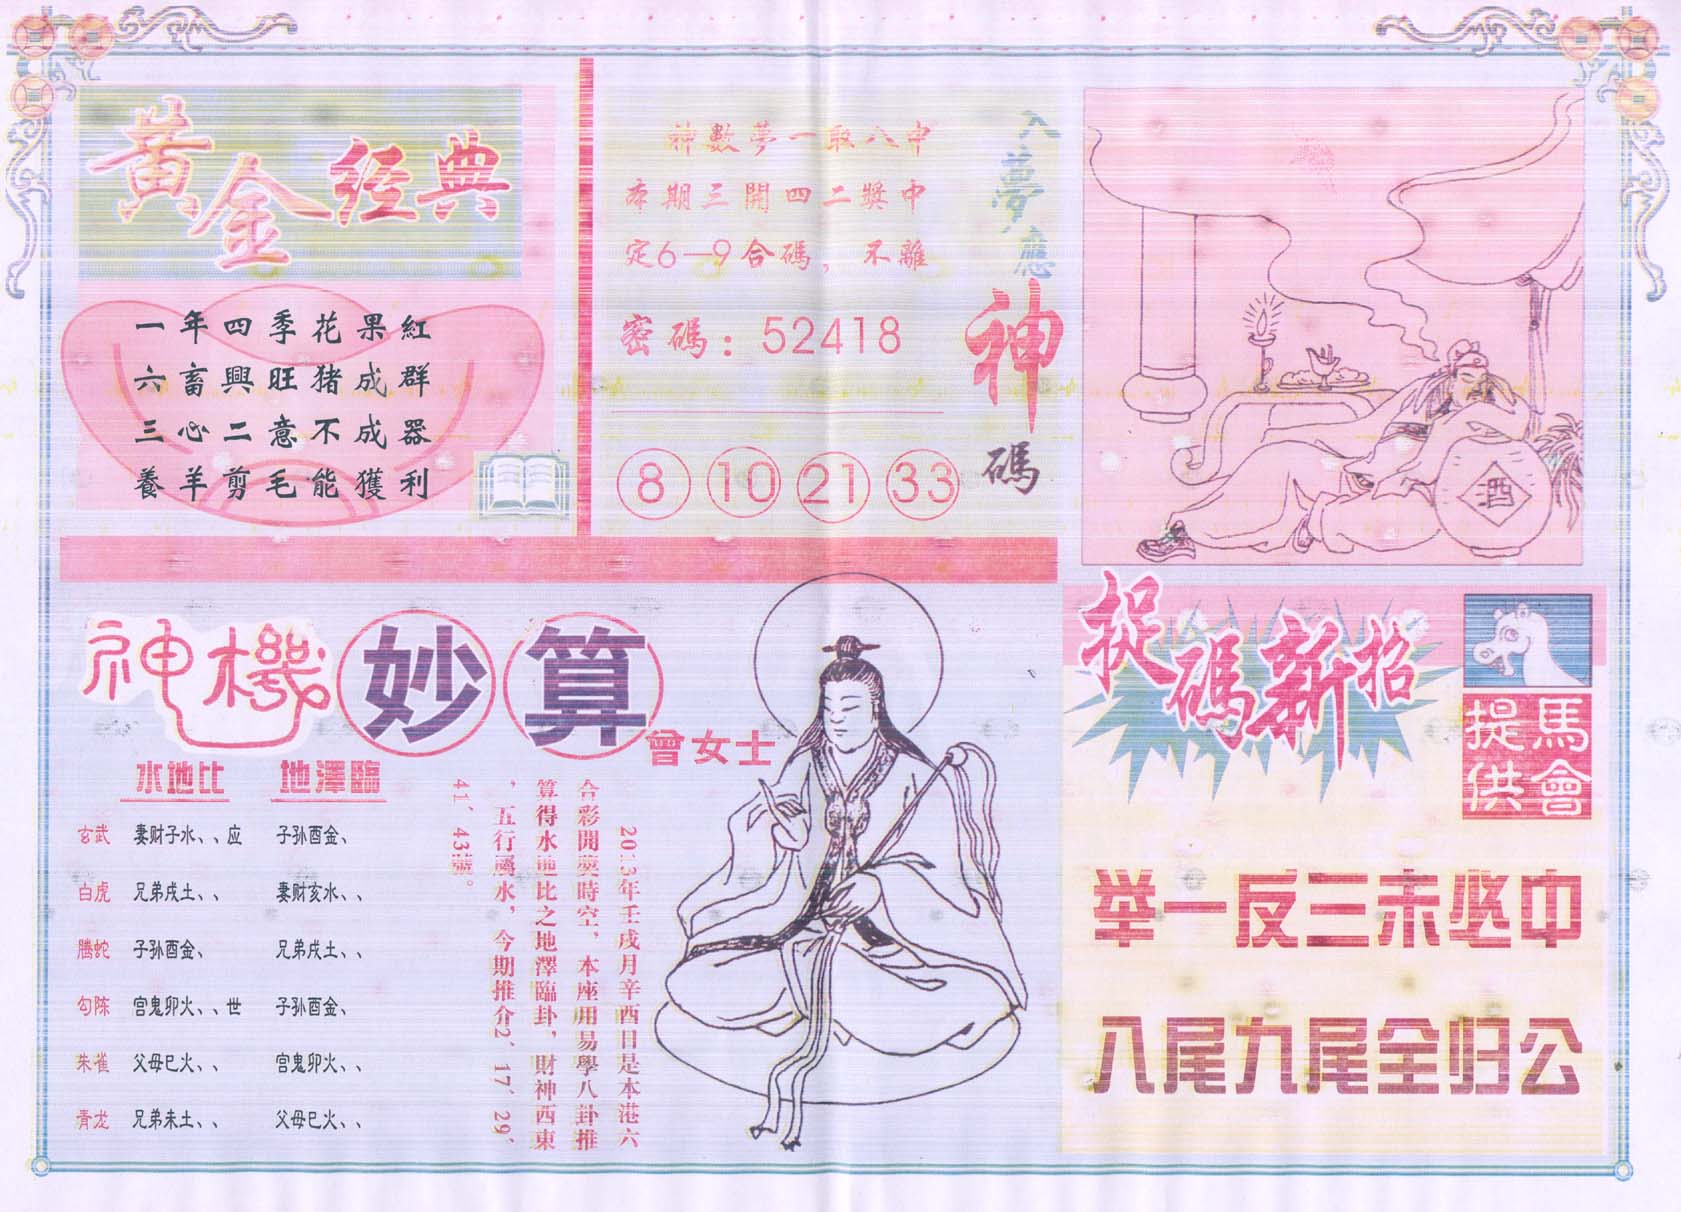 黃金经典
一年四季花果紅
六畜興旺猪成群
三心二意不成器
養羊剪毛能獲利
神數夢一取八中
本期三開四二獎中
定6—9合碼，不離
密碼：52418
8 10 21 33
入夢應神碼
酒
神機妙算
曾女士
水地比 地澤臨
玄武 妻财子水、、应 子孙酉金、
白虎 兄弟戌土、、 妻财亥水、、
腾蛇 子孙酉金、 兄弟戌土、、
勾陈 宫鬼卯火、、世 子孙酉金、
朱雀 父母巳火、、 宫鬼卯火、、
青龙 兄弟未土、、 父母巳火、、
2013年壬戌月辛酉日是本港六
合彩開獎時空，本座用易學八卦推
算得水地比之地澤臨卦，財神西東
，五行屬水，今期推介2、17、29、
41、43號。
捉碼新招
馬會提供
举一反三未必中
八尾九尾全归公